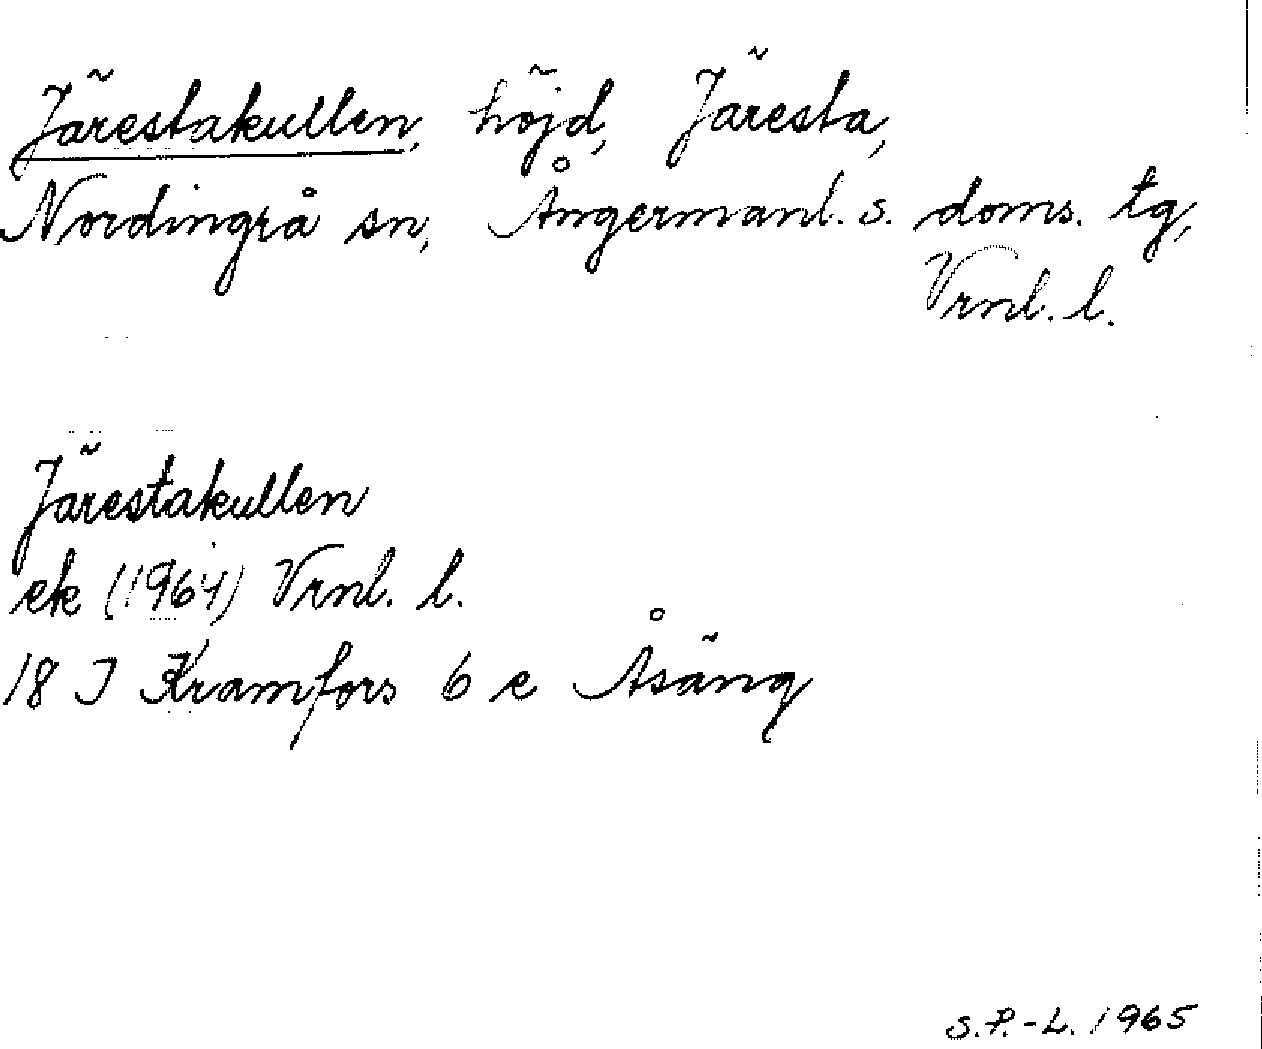 Järestakullen, höjd, Järesta,
Nordingrå sn, Ångermanl. s. doms. tg,
Vrnl. l.
Järestakullen
ek (1964) Vrnl. l.
18 J Kramfors 6 e Åsäng
S.P.-L. 1965